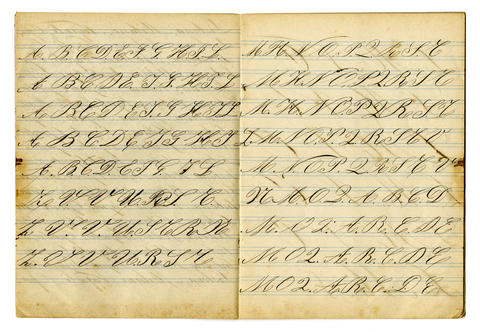 A. B. C. D. E. F. G. H. I. L.
A B C D E. F. G. H. I. L
A B C D E F. G. H I L
A B C D E F G H I
A. B C D. E F G I L
Z. V V V U R S T.
Z. V. V. V. U. S. T. R. R.
Z. V V. V. U. R. S T
M. N. O. P. Q. R S T
M. N. O. P. Q R S T
M. N. O. P. Q. R. S T.
L M. N O. P. Q. R. S T V
M. N O P. Q. R S T V
N. A. O. Q. A. B. C. D
M. O Q. A. R. C. D E
M O Q. A. R. C. D E
M O Q. A R. C. D. E